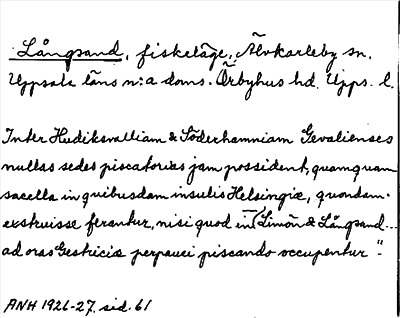 Långsand, fiskeläge, Älvkarleby sn.
Uppsala läns n:a doms. Örbyhus hd. Upps. l.
Inter Hudiksvalliam & Söderhamniam Gevalienses
nullas sedes piscatorias jam possident, quamquam
sacella in quibusdam insulis Helsingiæ, quondam
exstruisse ferantur, nisi quod in (Limön & Långsand...
ad oras Gestriciæ perpauci piscando occupentur".
ANH 1926-27. sid. 61